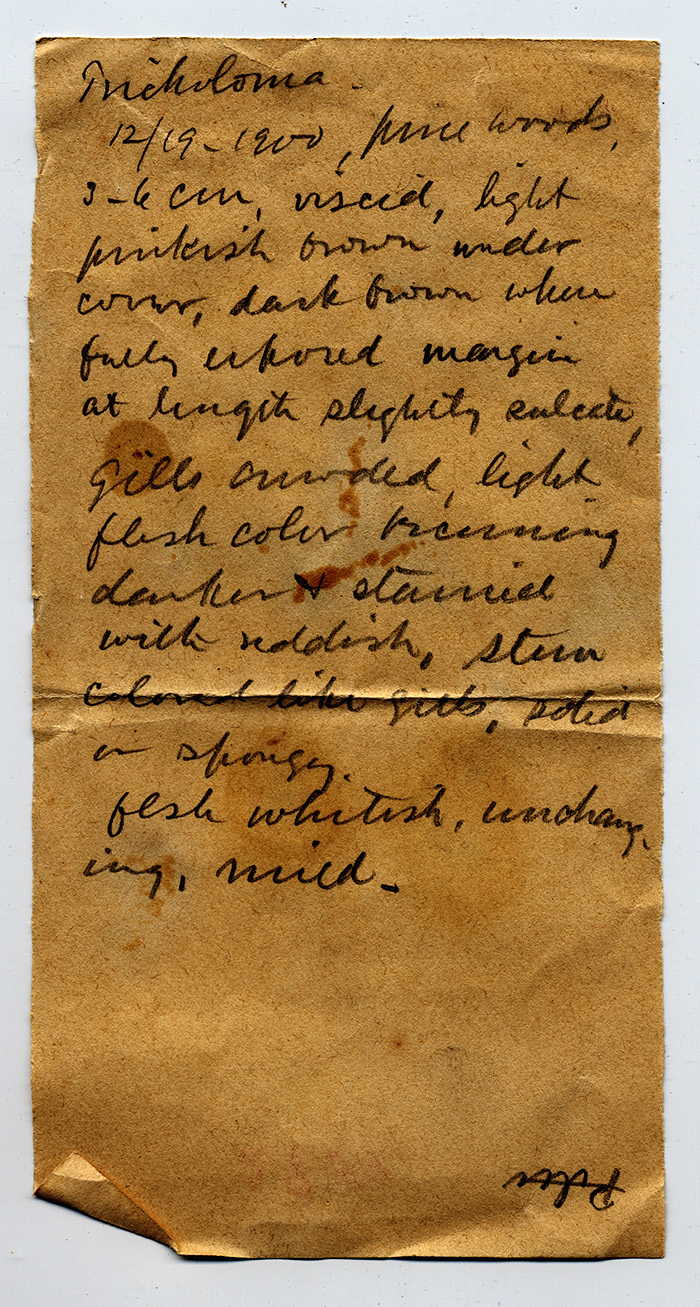 Tricholoma.
12/19-1900, pine woods,
3-6 cm, viscid, light
pinkish brown under
cover, dark brown where
fully exposed margin
at length slightly sulcate,
gills crowded, light
flesh color becoming
darker & stained
with reddish, stem
colored like gills, solid
or spongy.
flesh whitish, unchang-
ing, mild-